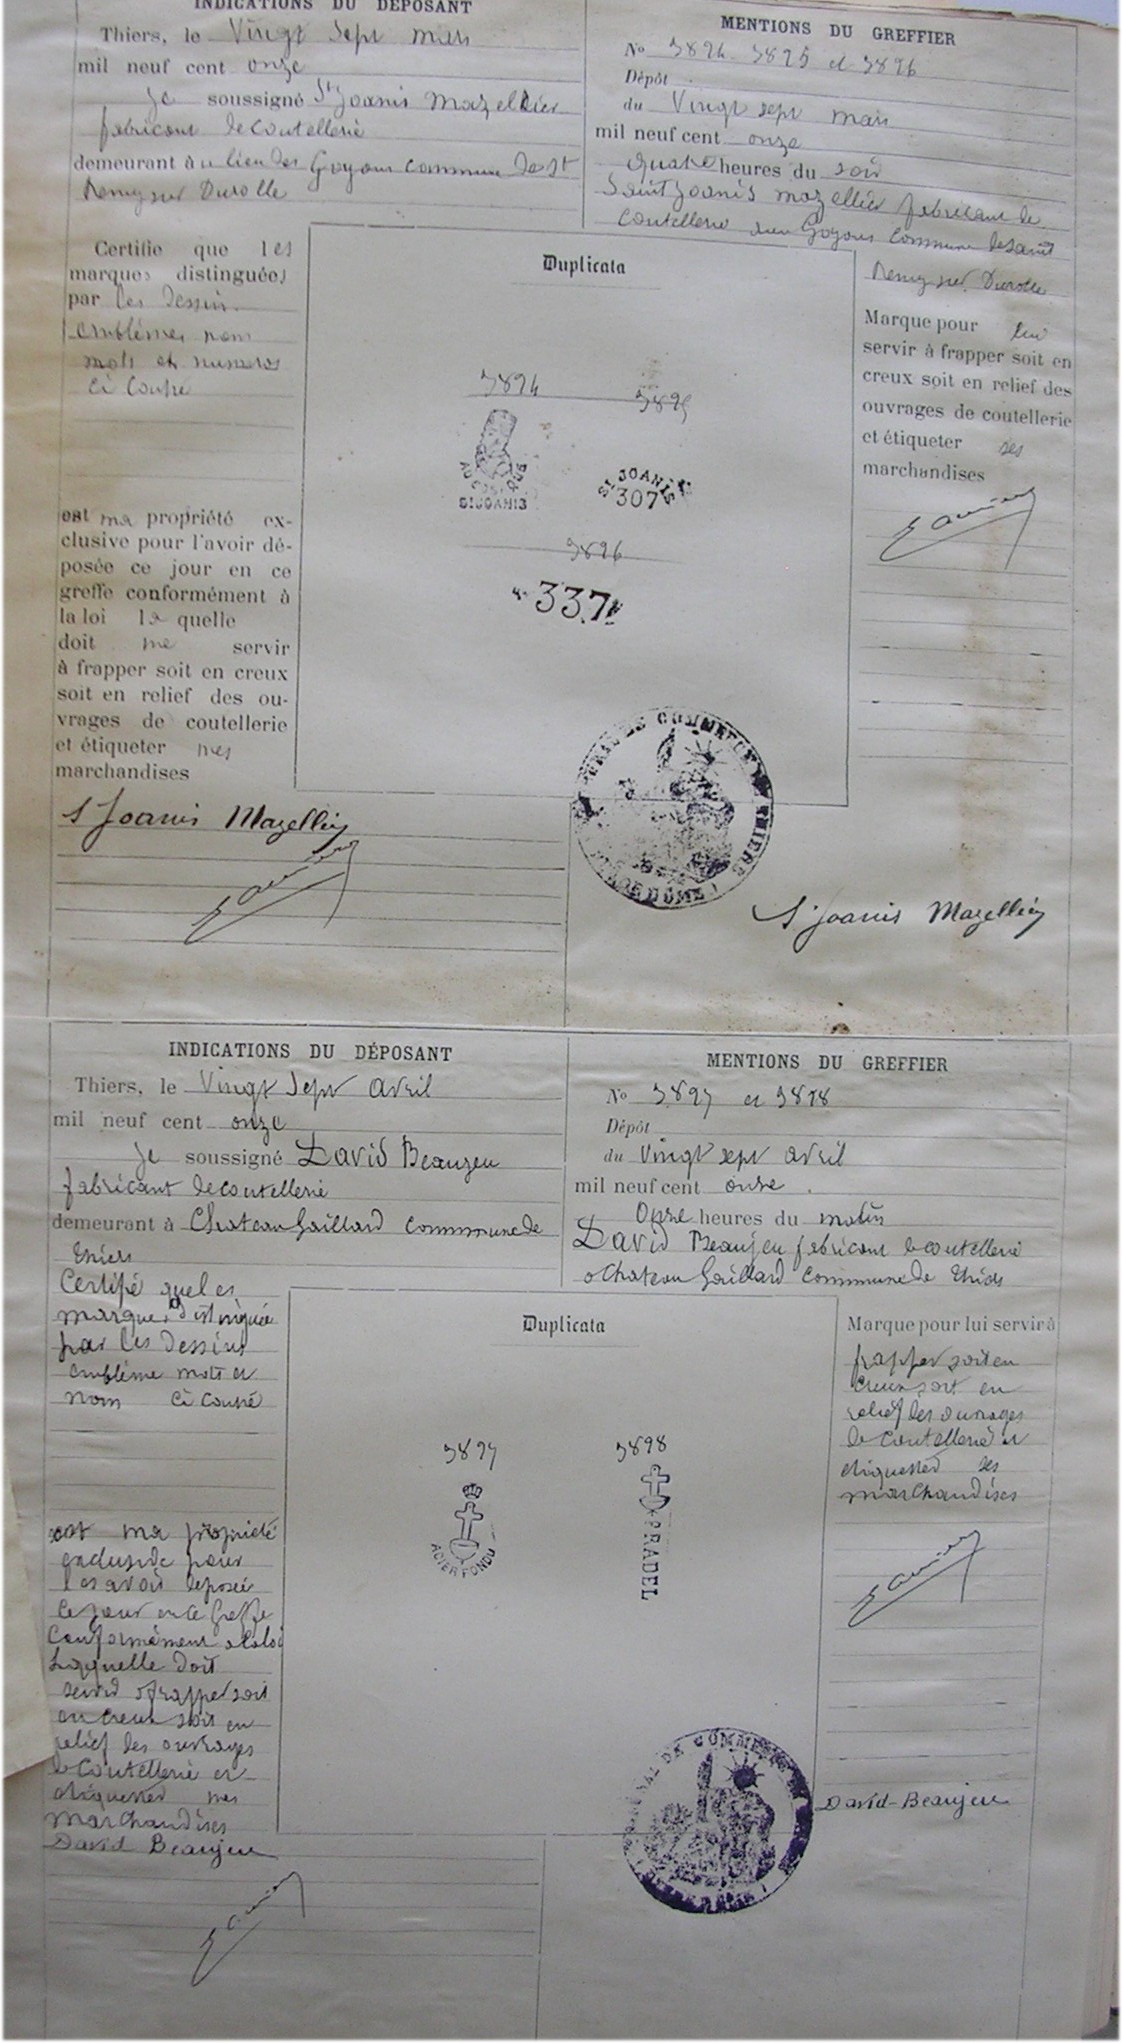 INDICATIONS DU DÉPOSANT
Thiers, le Vingt Sept mars
mil neuf cent onze
Je soussigné St Joanis Mazellier
fabricant de coutellerie
demeurant à u lieu des Goyons commune de St
Remy sur Durolle
Certifie que les
marques distinguées
par les dessin
emblèmes nom
mots et numeros
ci contre
est ma propriété ex-
clusive pour l'avoir dé-
posée ce jour en ce
greffe conformément à
la loi la quelle
doit me servir
à frapper soit en creux
soit en relief des ou-
vrages de coutellerie
et étiqueter mes
marchandises
St Joanis Mazellier
MENTIONS DU GREFFIER
No 3894 3895 et 3896
Dépôt
du Vingt sept mars
mil neuf cent onze
quatre heures du soir
Saint Joanis Mazellier fabricant de
coutellerie aux Goyons commune de Saint
Remy sur Durolle
Duplicata
3894
3895
AU COSAQUE
St JOANIS
St JOANIS
307
3896
337
Marque pour lui
servir à frapper soit en
creux soit en relief des
ouvrages de coutellerie
et étiqueter ses
marchandises
DE COMMERCE THIERS
St Joanis Mazellier
INDICATIONS DU DÉPOSANT
Thiers, le Vingt Sept avril
mil neuf cent onze
Je soussigné David Beaujeu
fabricant de coutellerie
demeurant à Chateau Gaillard commune de
Thiers
Certifié que les
marques distinguée
par les dessins
emblème mots et
nom ci contre
est ma propriété
exclusive pour
les avoir déposée
ce jour en ce Greffe
conformément a la loi
Laquelle doit
servir a frapper soit
en creux soit en
relief des ouvrages
de coutellerie et
étiquetter mes
marchandises
David Beaujeu
MENTIONS DU GREFFIER
No 3897 et 3898
Dépôt
du Vingt sept avril
mil neuf cent onze
Onze heures du matin
David Beaujeu fabricant de coutellerie
a Chateau Gaillard commune de Thiers
Duplicata
3897
3898
ACIER FONDU
PRADEL
Marque pour lui servir à
frapper soit en
creux soit en
relief des ouvrages
de coutellerie et
etiquetter ses
marchandises
DE COMMERCE
David-Beaujeu